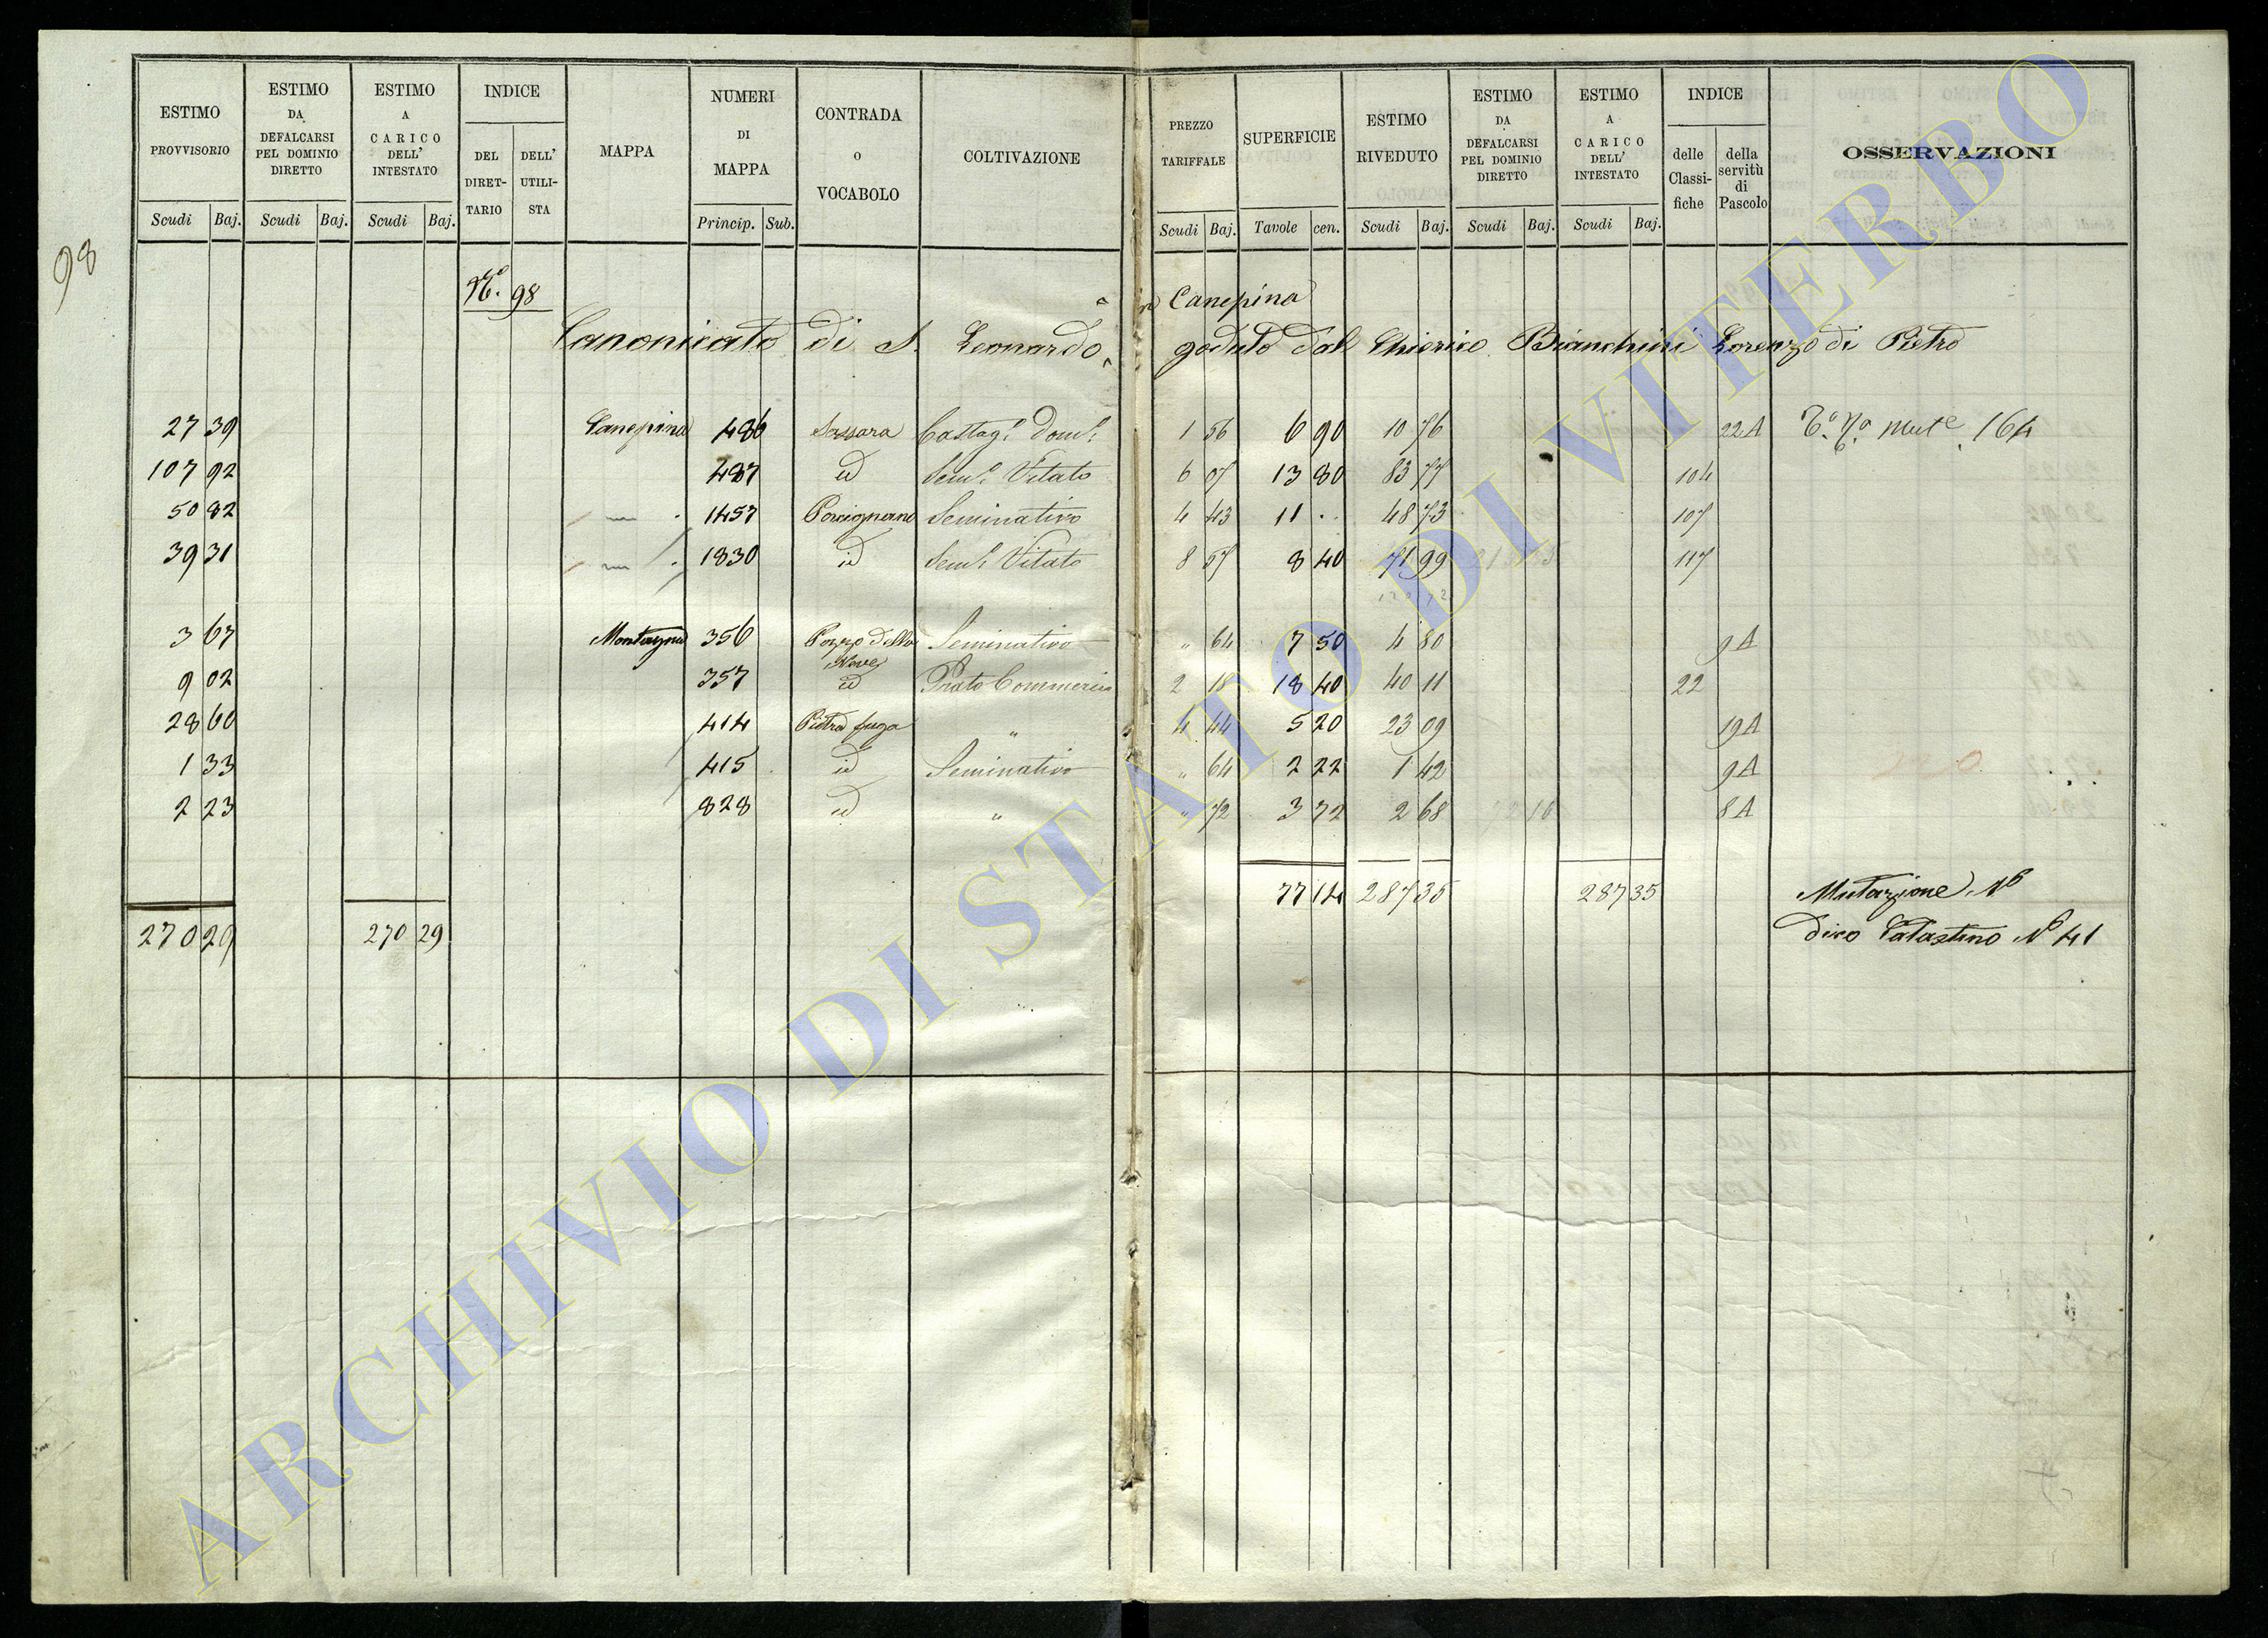 98
ESTIMO PROVVISORIO ESTIMO DA DEFALCARSI PEL DOMINIO DIRETTO ESTIMO A CARICO DELL' INTESTATO INDICE DEL DIRET-TARIO DELL' UTILI-STA MAPPA NUMERI DI MAPPA CONTRADA O VOCABOLO COLTIVAZIONE PREZZO TARIFFALE SUPERFICIE ESTIMO RIVEDUTO ESTIMO DA DEFALCARSI PEL DOMINIO DIRETTO ESTIMO A CARICO DELL' INTESTATO INDICE delle Classi-fiche della servitù di Pascolo OSSERVAZIONI
Scudi Baj. Scudi Baj. Scudi Baj. Princip. Sub. Scudi Baj. Tavole cen. Scudi Baj. Scudi Baj. Scudi Baj.
N.o 98
Canonicato di S. Leonardo
in Canepina
goduto dal Chierico Bianchini Lorenzo di Pietro
27 39 Canepina 486 Sassara Castag.e Dom.e 1 56 6 90 10 76 22A 164
107 92 487 id Sem.o Vitato 6 07 13 80 83 77 104
50 82 1457 Porcignano Seminativo 4 43 11 . . 48 73 107
39 31 1830 id Sem.o Vitato 8 57 8 40 71 99 117
3 67 Montagna 356 Pozzo della Neve Seminativo " 64 7 50 4 80 9A
9 02 357 id Prato 2 18 18 40 40 11 22
28 60 414 Pietra fuga " 4 44 5 20 23 09 19A
1 33 415 id Seminativo " 64 2 22 1 42 9A
2 23 828 id " " 72 3 72 2 68 8A
77 14 287 35 287 35 Mutazione N.o
270 29 270 29 dico Catastino N.o 41
ARCHIVIO DI STATO DI VITERBO